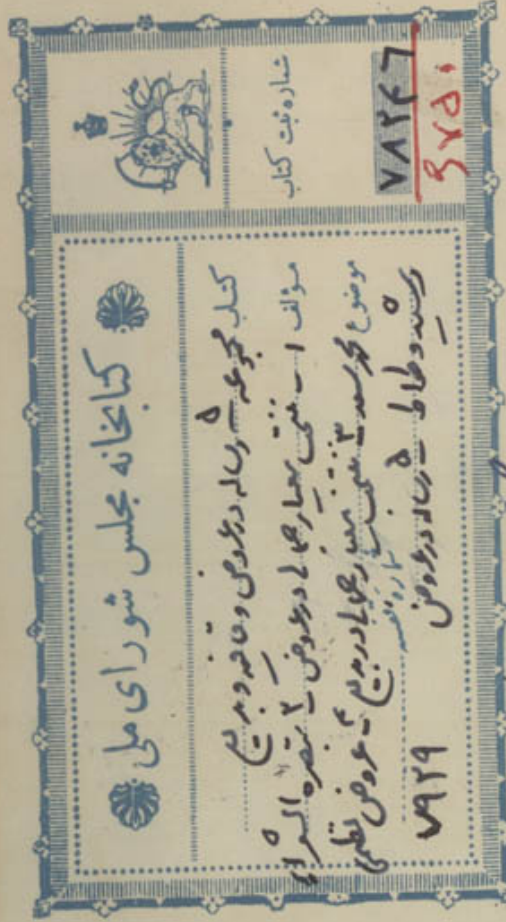 کتابخانه مجلس شورای ملی
کتاب مجموعه ۵ رساله در عروض و قافیه و بدیع
مؤلف ۱- منتخب معیار جمالی در عروض ۲- تبصرة الشعراء
موضوع محمد سعد ۳- منتخب معیار جمالی در بدیع ۴- عروض نظمی
رشید وطواط ۵- رساله در عروض
شماره قفسه
۷۹۲۹
شماره ثبت کتاب
۷۸۲۴۶